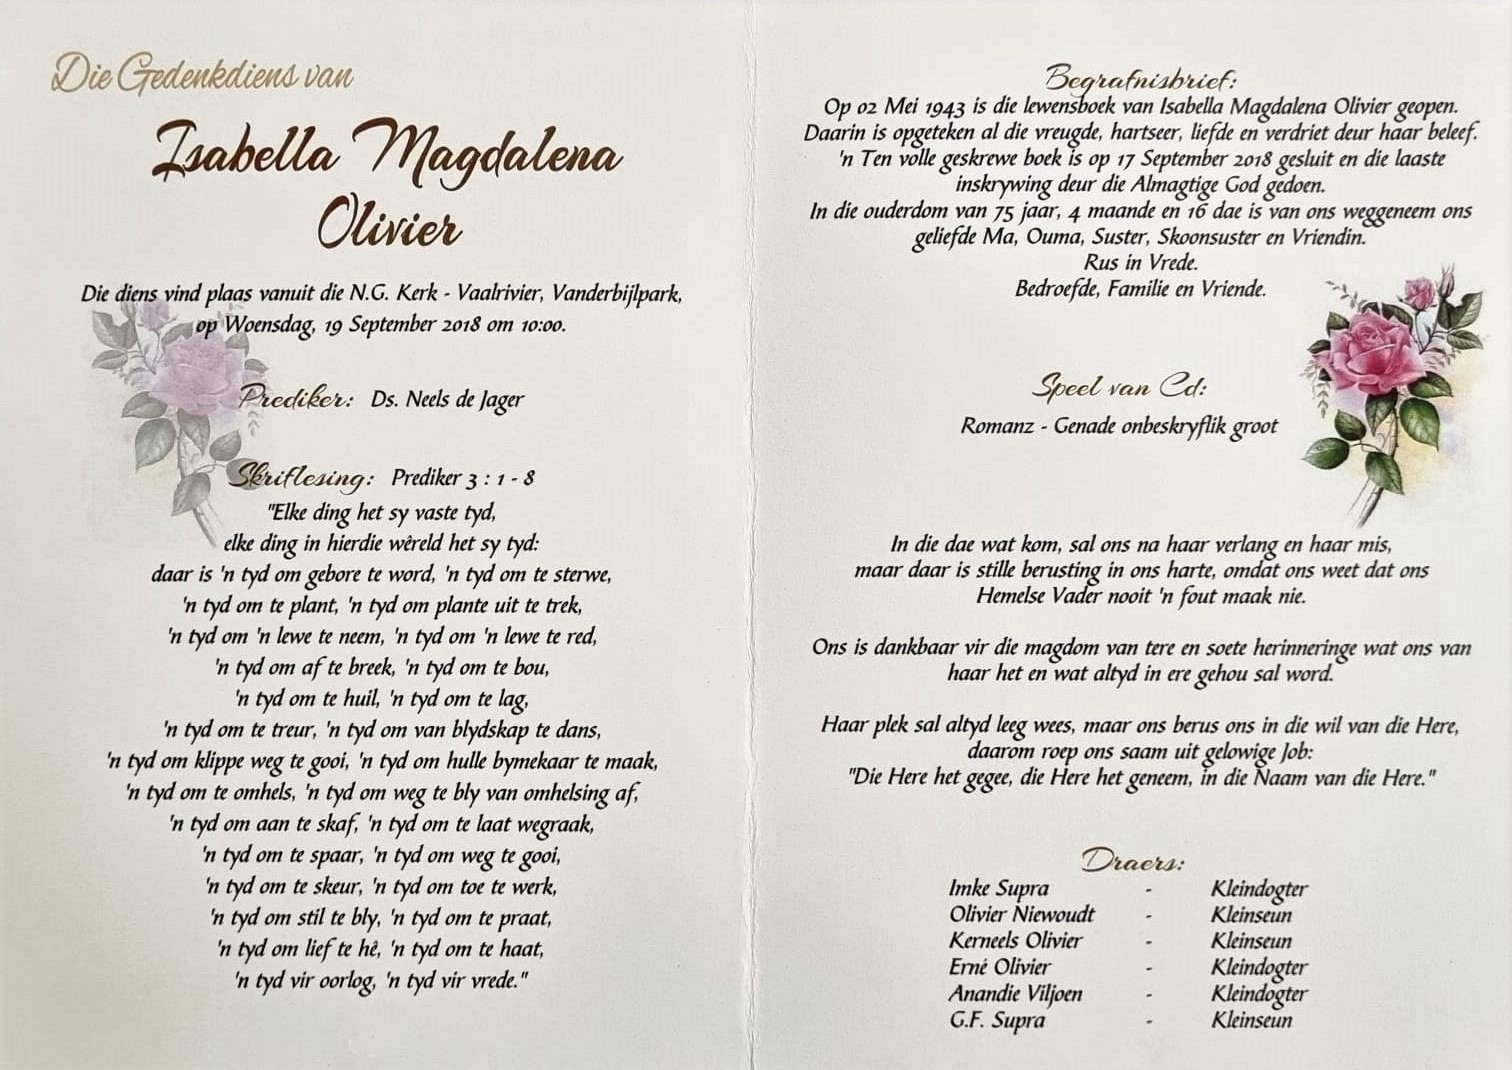 Die Gedenkdiens van
Isabella Magdalena
Olivier
Die diens vind plaas vanuit die N.G. Kerk - Vaalrivier, Vanderbijlpark,
op Woensdag, 19 September 2018 om 10:00.
Prediker: Ds. Neels de Jager
Skriflesing: Prediker 3 : 1 - 8
"Elke ding het sy vaste tyd,
elke ding in hierdie wêreld het sy tyd:
daar is 'n tyd om gebore te word, 'n tyd om te sterwe,
'n tyd om te plant, 'n tyd om plante uit te trek,
'n tyd om 'n lewe te neem, 'n tyd om 'n lewe te red,
'n tyd om af te breek, 'n tyd om te bou,
'n tyd om te huil, 'n tyd om te lag,
'n tyd om te treur, 'n tyd om van blydskap te dans,
'n tyd om klippe weg te gooi, 'n tyd om hulle bymekaar te maak,
'n tyd om te omhels, 'n tyd om weg te bly van omhelsing af,
'n tyd om aan te skaf, 'n tyd om te laat wegraak,
'n tyd om te spaar, 'n tyd om weg te gooi,
'n tyd om te skeur, 'n tyd om toe te werk,
'n tyd om stil te bly, 'n tyd om te praat,
'n tyd om lief te hê, 'n tyd om te haat,
'n tyd vir oorlog, 'n tyd vir vrede."
Begrafnisbrief:
Op 02 Mei 1943 is die lewensboek van Isabella Magdalena Olivier geopen.
Daarin is opgeteken al die vreugde, hartseer, liefde en verdriet deur haar beleef.
'n Ten volle geskrewe boek is op 17 September 2018 gesluit en die laaste
inskrywing deur die Almagtige God gedoen.
In die ouderdom van 75 jaar, 4 maande en 16 dae is van ons weggeneem ons
geliefde Ma, Ouma, Suster, Skoonsuster en Vriendin.
Rus in Vrede.
Bedroefde, Familie en Vriende.
Speel van Cd:
Romanz - Genade onbeskryflik groot
In die dae wat kom, sal ons na haar verlang en haar mis,
maar daar is stille berusting in ons harte, omdat ons weet dat ons
Hemelse Vader nooit 'n fout maak nie.
Ons is dankbaar vir die magdom van tere en soete herinneringe wat ons van
haar het en wat altyd in ere gehou sal word.
Haar plek sal altyd leeg wees, maar ons berus ons in die wil van die Here,
daarom roep ons saam uit gelowige Job:
"Die Here het gegee, die Here het geneem, in die Naam van die Here."
Draers:
Imke Supra - Kleindogter
Olivier Niewoudt - Kleinseun
Kerneels Olivier - Kleinseun
Erné Olivier - Kleindogter
Anandie Viljoen - Kleindogter
G.F. Supra - Kleinseun